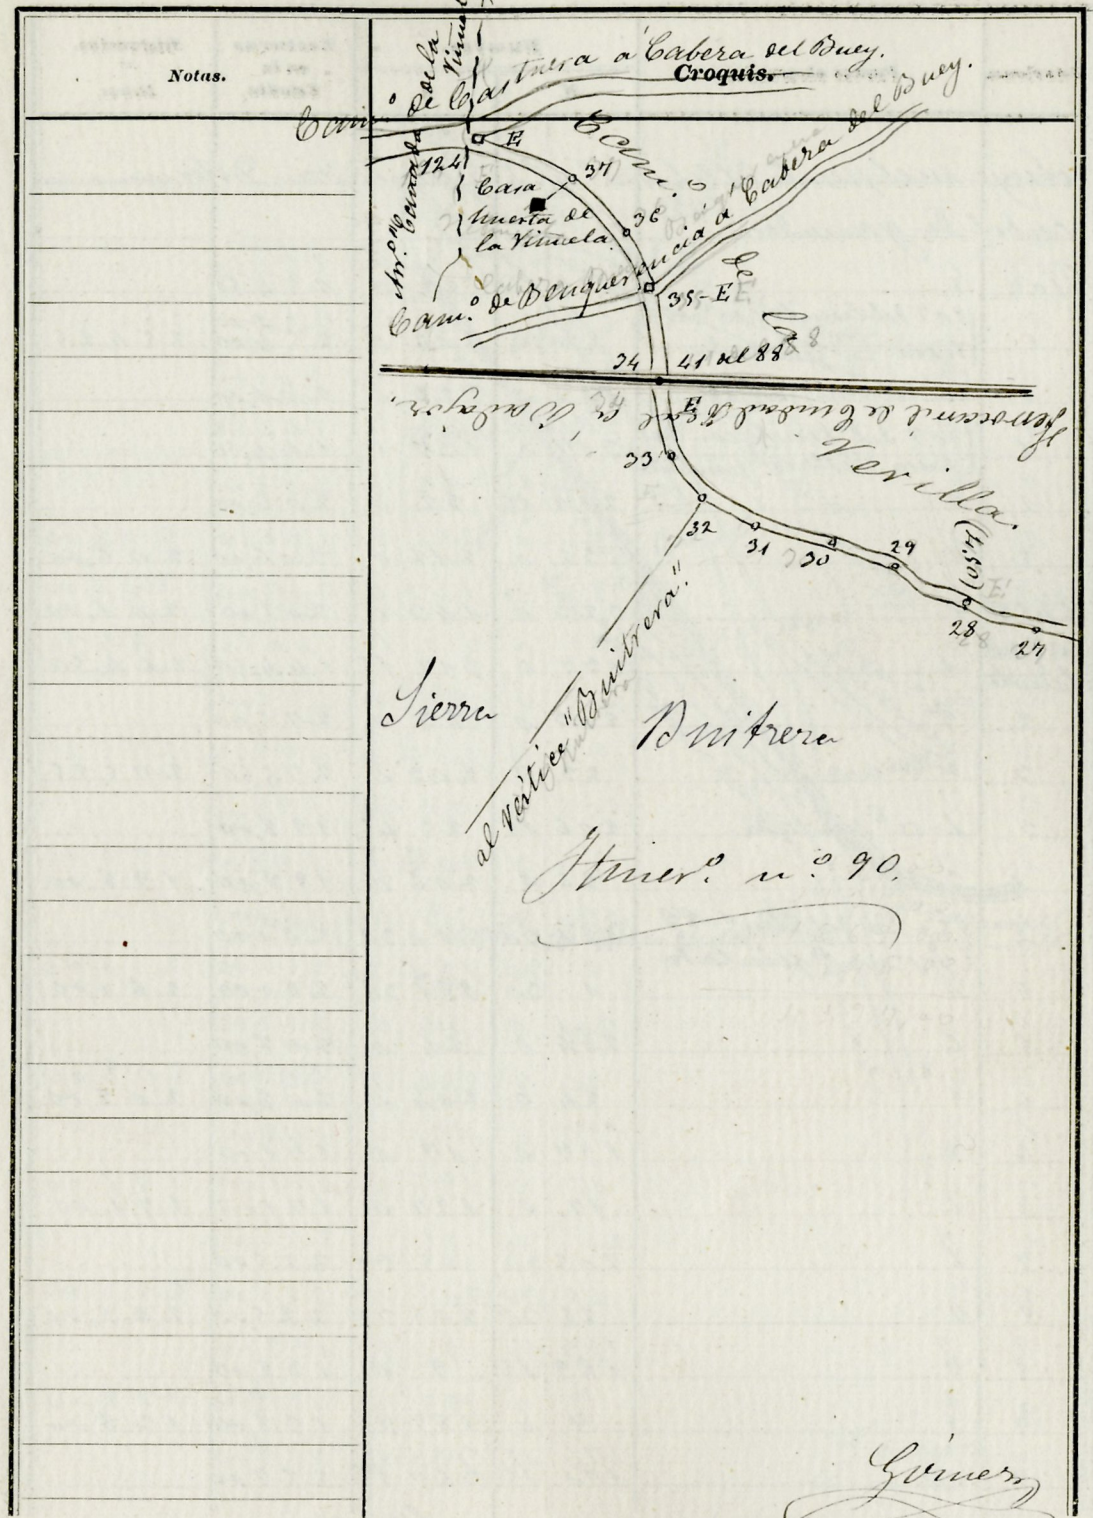 Notas.
Croquis.
Cam.º de Castuera á Cabeza del Buey.
Arr.º Cañada de la Viñuela
124
E
37
Casa
huerta de
la Viñuela.
36
Cam.º de la Verilla. (4,50)
Cam.º de Benquerencia á Cabeza del Buey.
35-E
34
41 al 88
E
Ferrocarril de Ciudad Real á Badajoz.
33
32
31
30
29
28
27
al vértice "Buitrera".
Sierra Buitrera
Itiner.º n.º 90.
Gómez